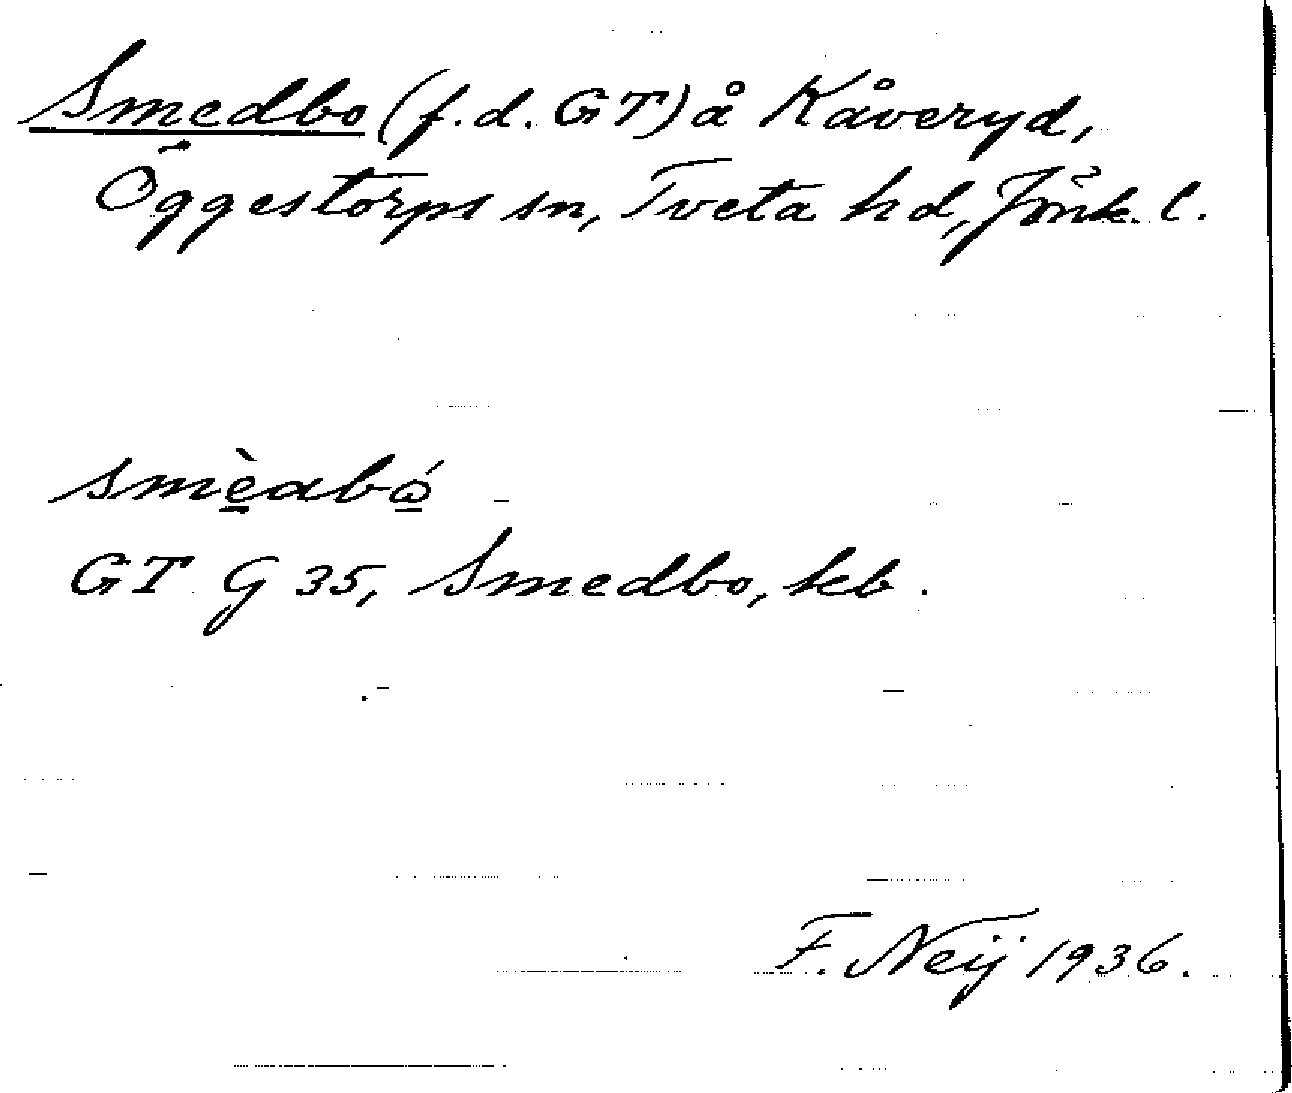 Smedbo (f.d. GT) å Kåveryd,
Öggestorps sn, Tveta hd, Jönk. l.
smèabó
GT G 35, Smedbo, hb.
F. Neij 1936.